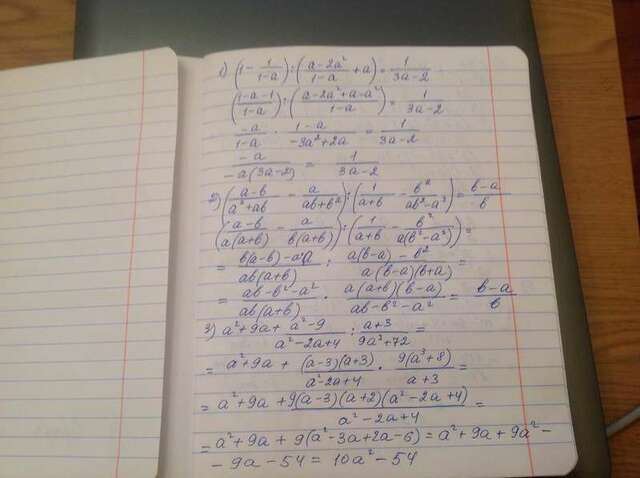 1) (1 - 1/(1-a)) : ((a-2a²)/(1-a) + a) = 1/(3a-2)
((1-a-1)/(1-a)) : ((a-2a²+a-a²)/(1-a)) = 1/(3a-2)
-a/(1-a) · (1-a)/(-3a²+2a) = 1/(3a-2)
-a/(-a(3a-2)) = 1/(3a-2)
2) ((a-b)/(a²+ab) - a/(ab+b²)) : (1/(a+b) - b²/(ab²-a³)) = (b-a)/b
((a-b)/(a(a+b)) - a/(b(a+b))) : (1/(a+b) - b²/(a(b²-a²))) =
= (b(a-b)-a·a)/(ab(a+b)) : (a(b-a)-b²)/(a(b-a)(b+a)) =
= (ab-b²-a²)/(ab(a+b)) · (a(a+b)(b-a))/(ab-b²-a²) = (b-a)/b
3) a²+9a+ (a²-9)/(a²-2a+4) : (a+3)/(9a³+72) =
= a²+9a + ((a-3)(a+3))/(a²-2a+4) · (9(a³+8))/(a+3) =
= a²+9a + (9(a-3)(a+2)(a²-2a+4))/(a²-2a+4) =
= a²+9a + 9(a²-3a+2a-6) = a²+9a+9a²-
- 9a-54 = 10a²-54